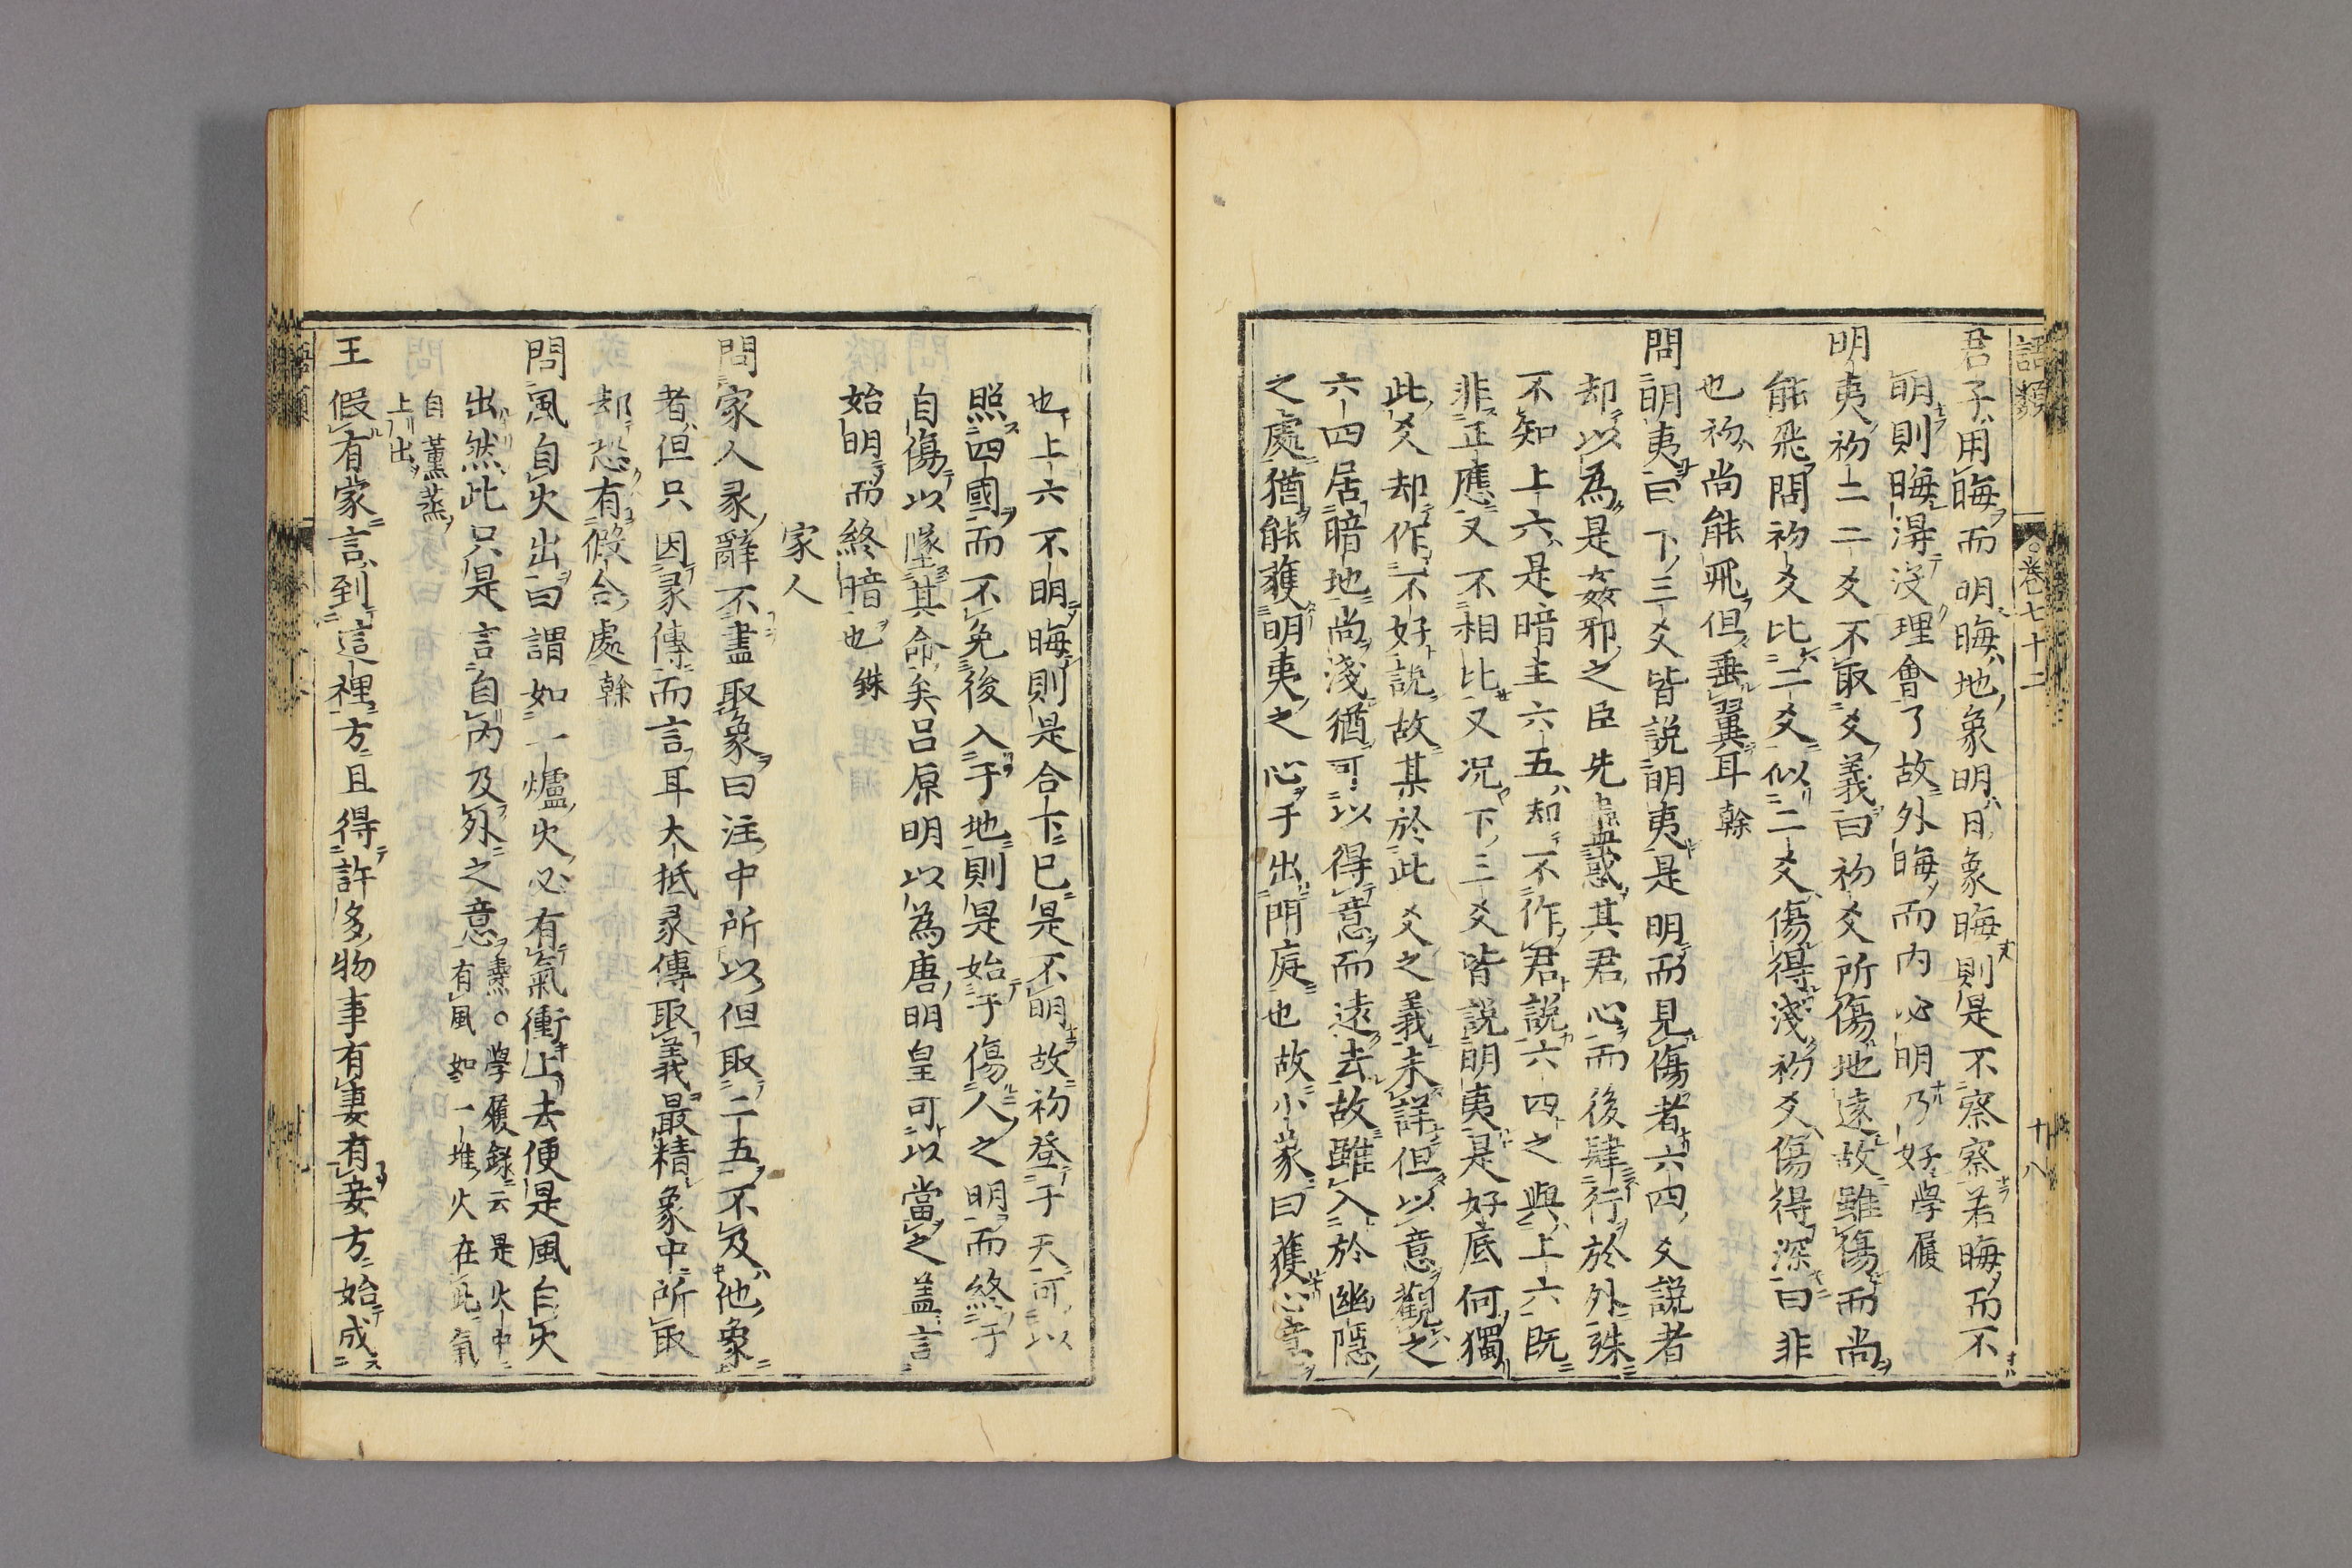 語類 卷七十二 十八
君子用晦而明晦地象明日象晦則是不察察若晦而不
明則晦得沒理會了故外晦而內必明乃好學履
明夷初二二爻不取爻義曰初爻所傷地遠故雖傷而尚
能飛問初爻比二爻似二爻傷得淺初爻傷得深曰非
也初尚能飛但垂翼耳榦
問明夷曰下三爻皆說明夷是明而見傷者六四爻說者
却以為是姦邪之臣先蠱惑其君心而後肆行於外殊
不知上六是暗主六五却不作君說六四之與上六既
非正應又不相比又况下三爻皆說明夷是好底何獨
此爻却作不好說故某於此爻之義未詳但以意觀之
六四居暗地尚淺猶可以得意而遠去故雖入於幽隱
之處猶能獲明夷之心于出門庭也故小象曰獲心意
也上六不明晦則是合下已是不明故初登于天可以
照四國而不免後入于地則是始于傷人之明而終于
自傷以墜其命矣呂原明以為唐明皇可以當之蓋言
始明而終暗也銖
家人
問家人彖辭不盡取象曰注中所以但取二五不及他象
者但只因彖傳而言耳大抵彖傳取義最精象中所取
却恐有假合處榦
問風自火出曰謂如一爐火必有氣衝上去便是風自火
出然此只是言自內及外之意燾○學履錄云是火中
有風如一堆火在此氣
自薰蒸
上出
王假有家言到這裡方且得許多物事有妻有妾方始成